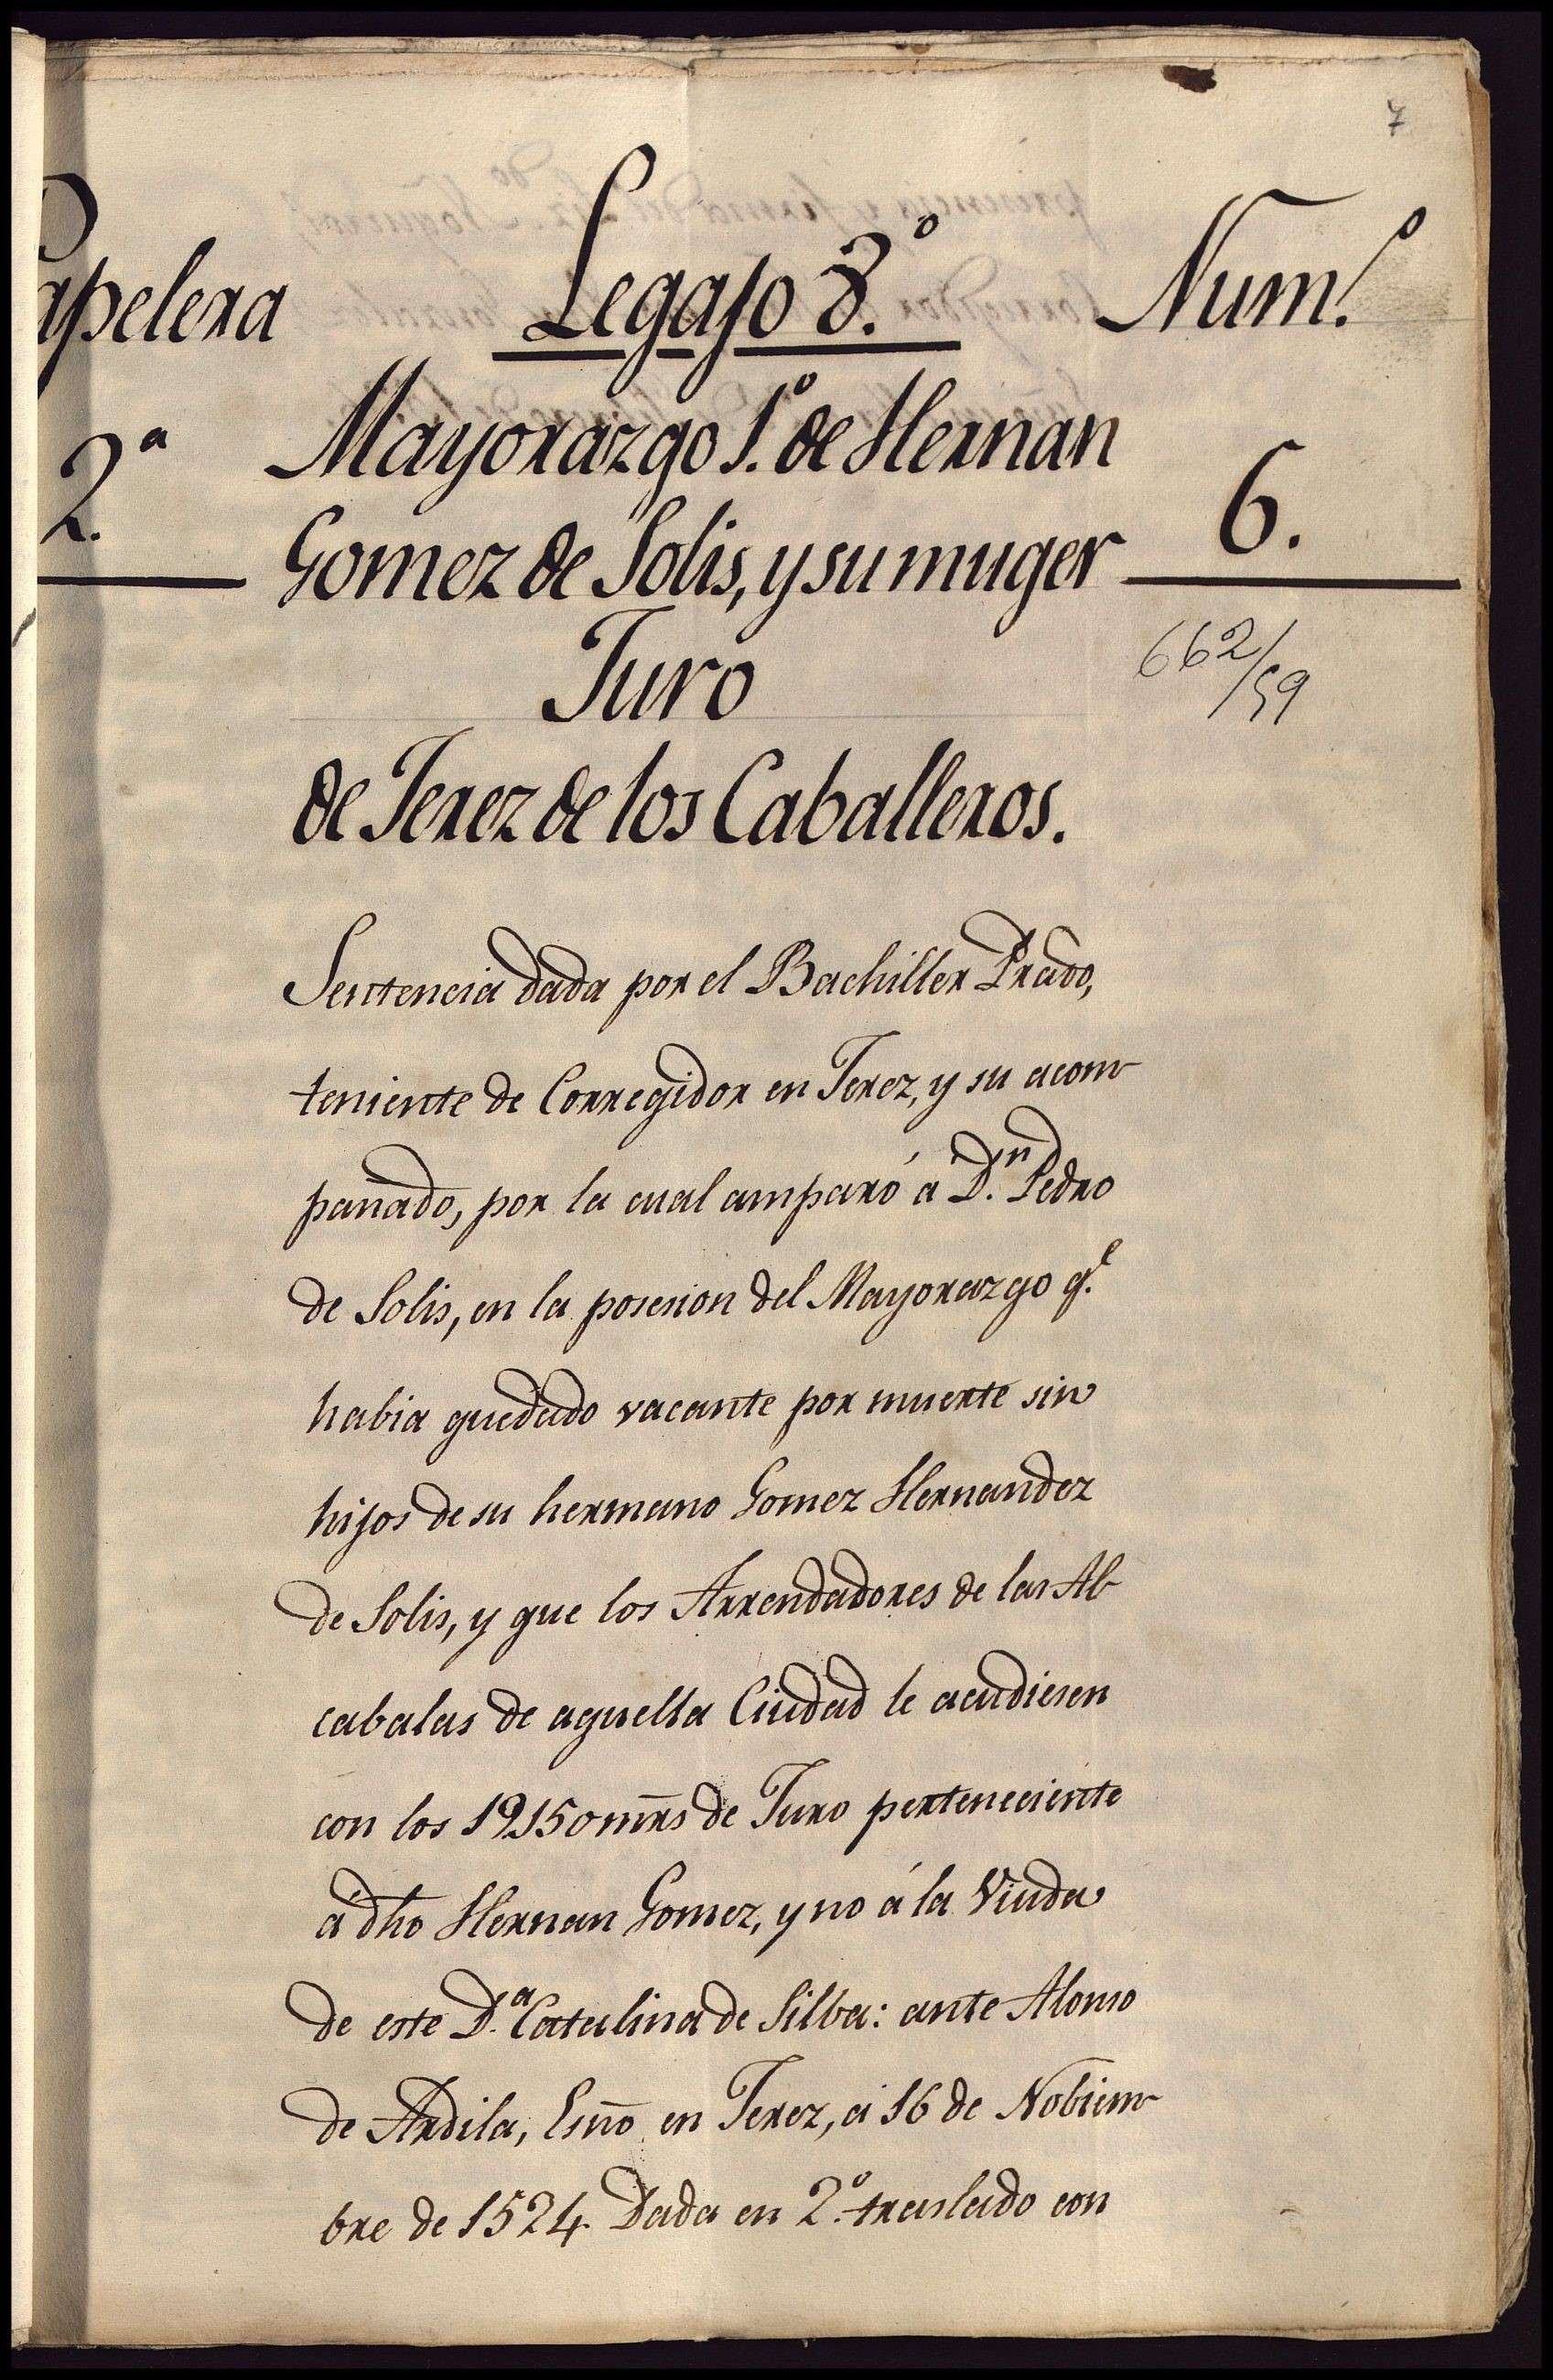 7
Papelera Legajo 8.º Num.º
2.ª Mayorazgo 1.º de Hernan 6.
Gomez de Solis, y su muger
662/59
Juro
de Jerez de los Caballeros.
Sentencia dada por el Bachiller Prado,
teniente de Corregidor en Jerez, y su acom-
pañado, por la cual amparó á D.n Pedro
de Solis, en la posesion del Mayorazgo q.e
habia quedado vacante por muerte sin
hijos de su hermano Gomez Hernandez
de Solis, y que los Arrendadores de las Al-
cabalas de aquella Ciudad le acudiesen
con los 19150 mrs de Juro perteneciente
á dho Hernan Gomez, y no á la Viuda
de este D.ª Catalina de Silba: ante Alonso
de Ardila, Esno en Jerez, á 16 de Nobiem-
bre de 1524. Dada en 2.º traslado con